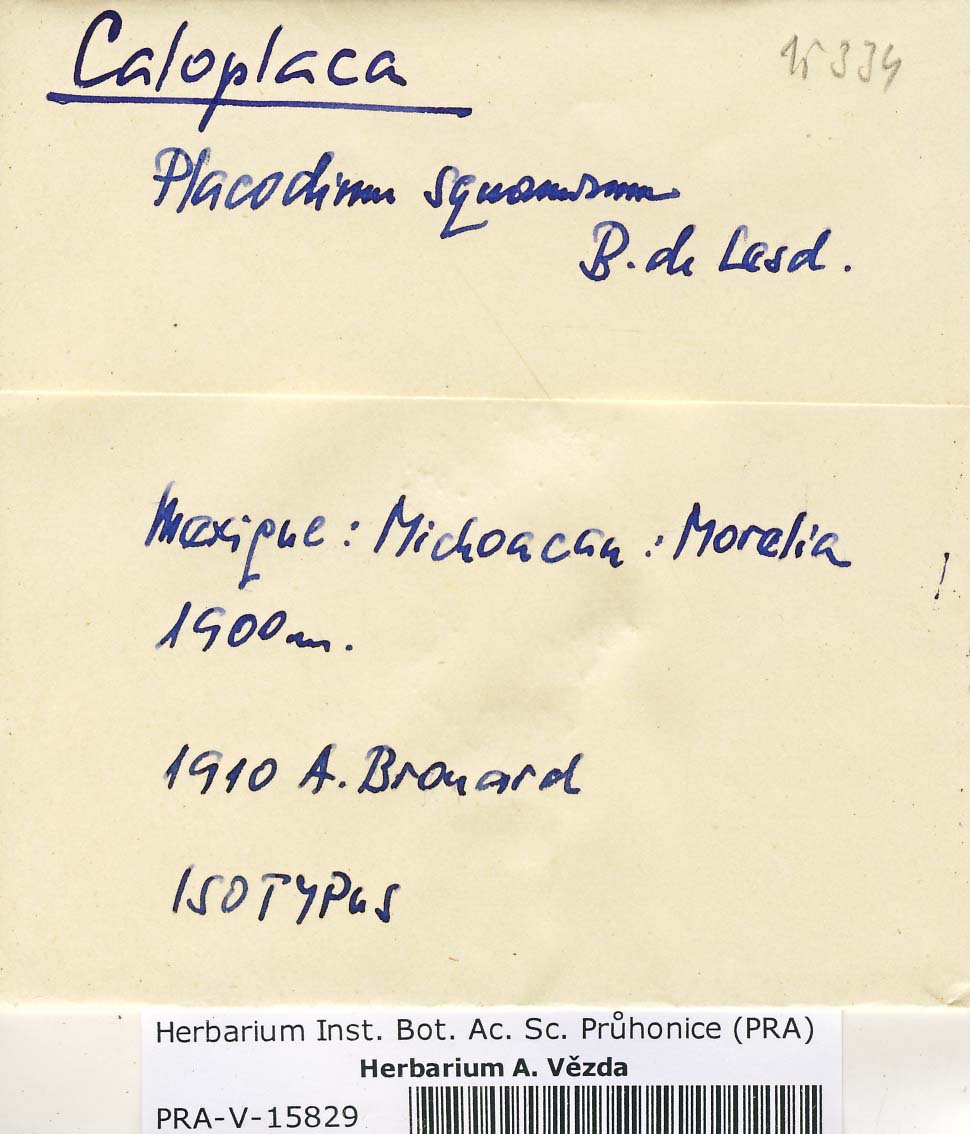 Caloplaca
15334
Placodium squamosum
B. de Lesd.
Mexique : Michoacan : Morelia
1900 m.
1910 A. Brouard
ISOTYPus
Herbarium Inst. Bot. Ac. Sc. Průhonice (PRA)
Herbarium A. Vězda
PRA-V-15829